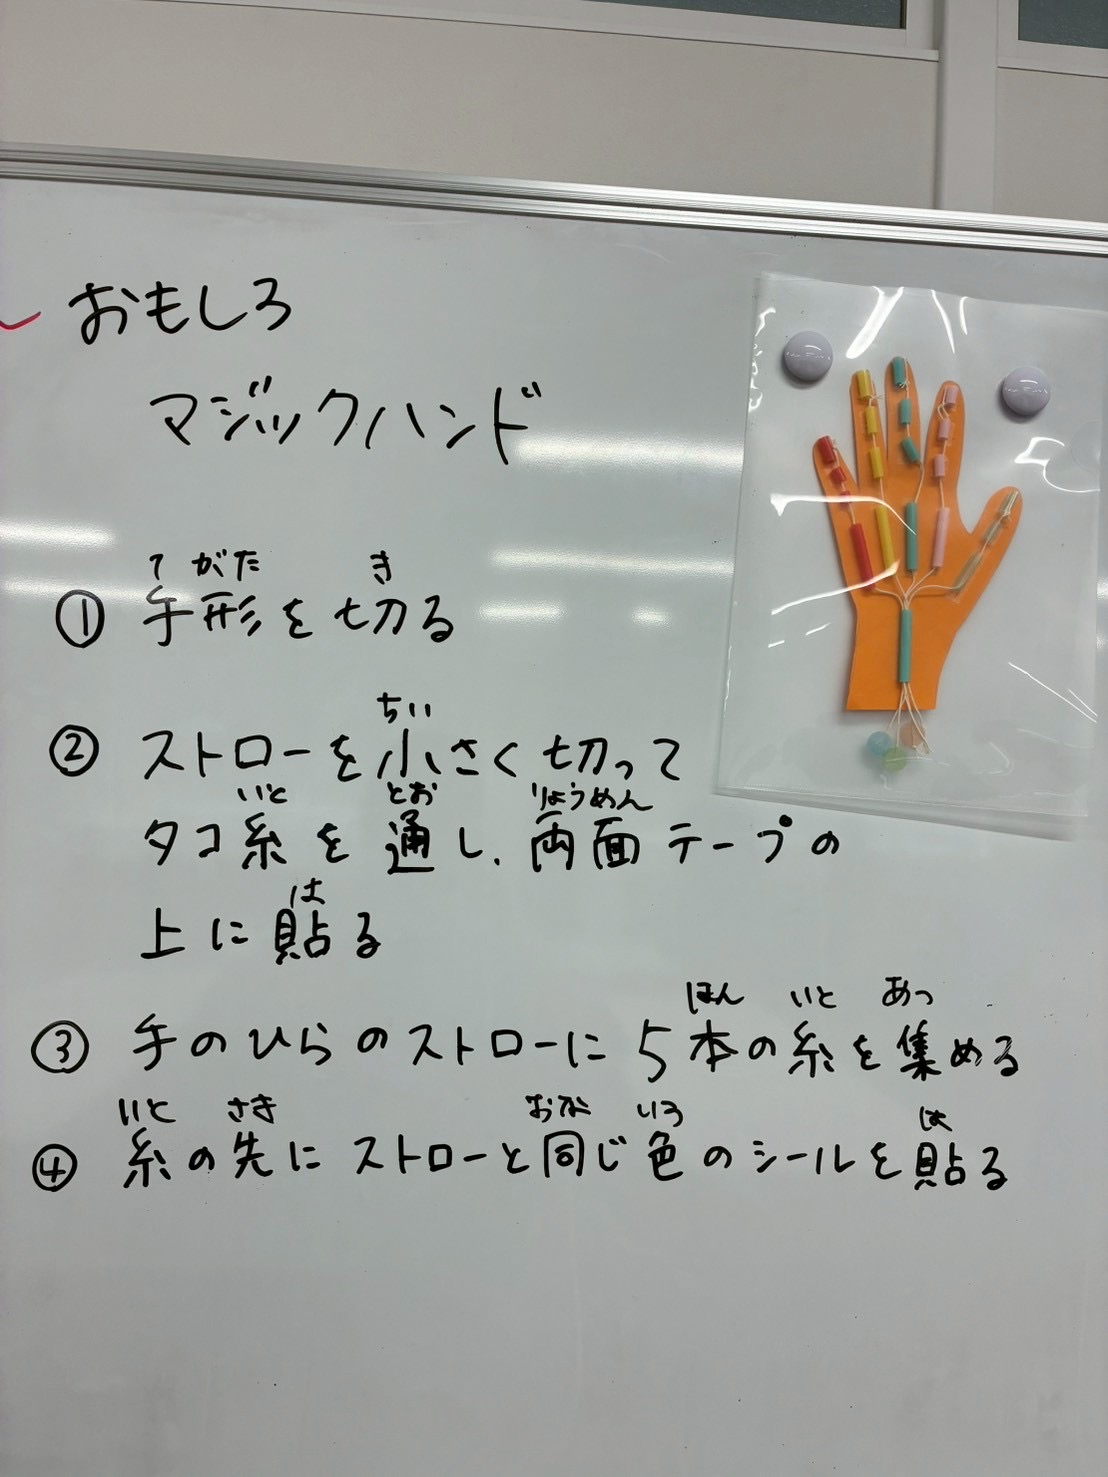 おもしろ
マジックハンド
てがた き
① 手形を切る
ちい
② ストローを小さく切って
いと とお りょうめん
タコ糸を通し、両面テープの
は
上に貼る
ほん いと あつ
③ 手のひらのストローに5本の糸を集める
いと さき おな いろ は
④ 糸の先にストローと同じ色のシールを貼る